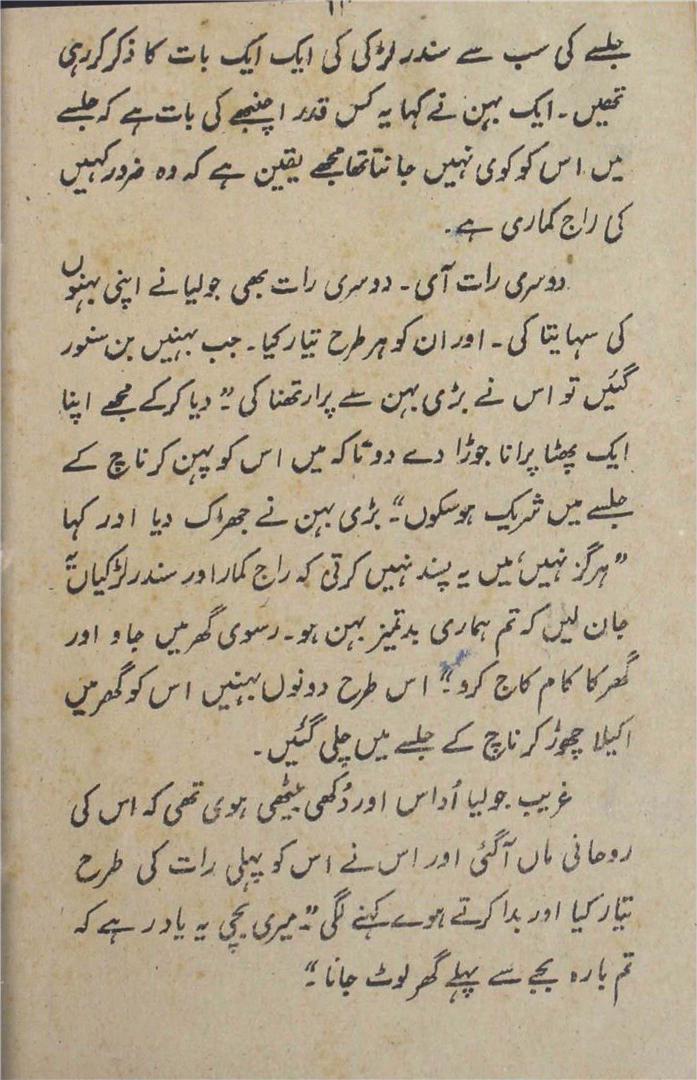 جلسے کی سب سے سندر لڑکی کی ایک ایک بات کا ذکر کر رہی
تھیں۔ ایک بہن نے کہا یہ کس قدر اچنبھے کی بات ہے کہ جلسے
میں اس کو کوی نہیں جانتا تھا مجھے یقین ہے کہ وہ ضرور کہیں
کی راج کماری ہے۔
دوسری رات آی۔ دوسری رات بھی جولیا نے اپنی بہنوں
کی سہایتا کی۔ اور ان کو ہر طرح تیار کیا۔ جب بہنیں بن سنور
گئیں تو اس نے بڑی بہن سے پرارتھنا کی "دیا کرکے مجھے اپنا
ایک پھٹا پرانا جوڑا دے دو تاکہ میں اس کو پہن کر ناچ کے
جلسے میں شریک ہو سکوں"۔ بڑی بہن نے جھڑک دیا اور کہا
"ہرگز نہیں، میں یہ پسند نہیں کرتی کہ راج کمار اور سندر لڑکیاں یہ
جان لیں کہ تم ہماری بدتمیز بہن ہو۔ رسوی گھر میں جاو اور
گھر کا کام کاج کرو"۔ اس طرح دونوں بہنیں اس کو گھر میں
اکیلا چھوڑ کر ناچ کے جلسے میں چلی گئیں۔
غریب جولیا اُداس اور دُکھی بیٹھی ہوی تھی کہ اس کی
روحانی ماں آگئی اور اس نے اس کو پہلی رات کی طرح
تیار کیا اور بدا کرتے ہوے کہنے لگی "میری بچی یہ یاد رہے کہ
تم بارہ بجے سے پہلے گھر لوٹ جانا۔"